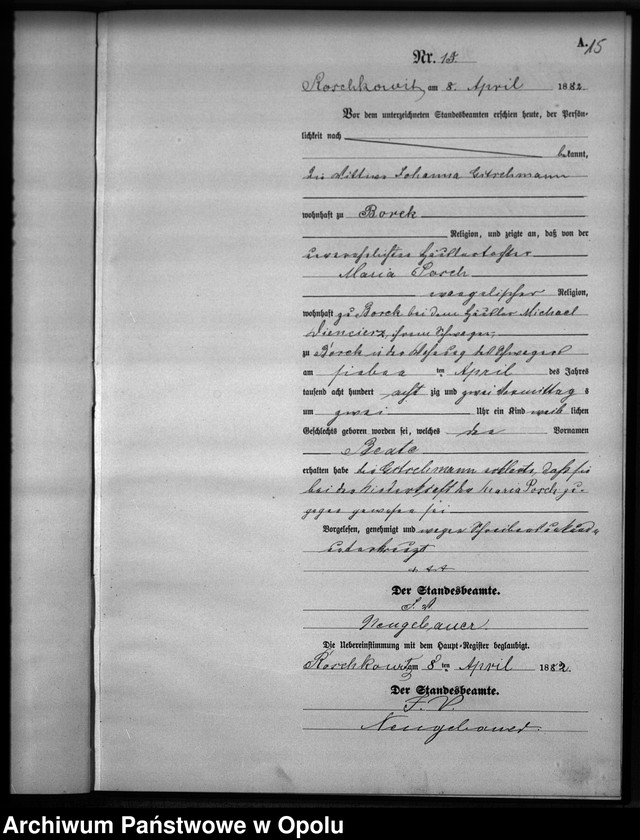 A. 15
Nr. 15
Roschkowitz am 8. April 1882
Vor dem unterzeichneten Standesbeamten erschien heute, der Persön-
lichkeit nach
bekannt,
die Johanna Gitschmann
wohnhaft zu Borek
Religion, und zeigte an, daß von der
unverehelichten Häuslertochter
Maria Porch
evangelischer Religion,
wohnhaft zu Borek bei dem Häusler Michael
ihrem Schwager,
zu Borek in der Wohnung des Schwagers
am sieben ten April des Jahres
tausend acht hundert acht zig und zwei Vormittag s
um zwei Uhr ein Kind weib lichen
Geschlechts geboren worden sei, welches den Vornamen
Beate
erhalten habe die Gitschmann erklärte, daß sie
bei der Niederkunft der Maria Porch zu-
gegen gewesen sei
Vorgelesen, genehmigt und wegen Schreibensunkund-
unterkreuzt
+++
Der Standesbeamte.
J. V.
Neugebauer.
Die Uebereinstimmung mit dem Haupt-Register beglaubigt.
Roschkowitz am 8 ten April 1882.
Der Standesbeamte.
J. V.
Neugebauer.
Archiwum Państwowe w Opolu